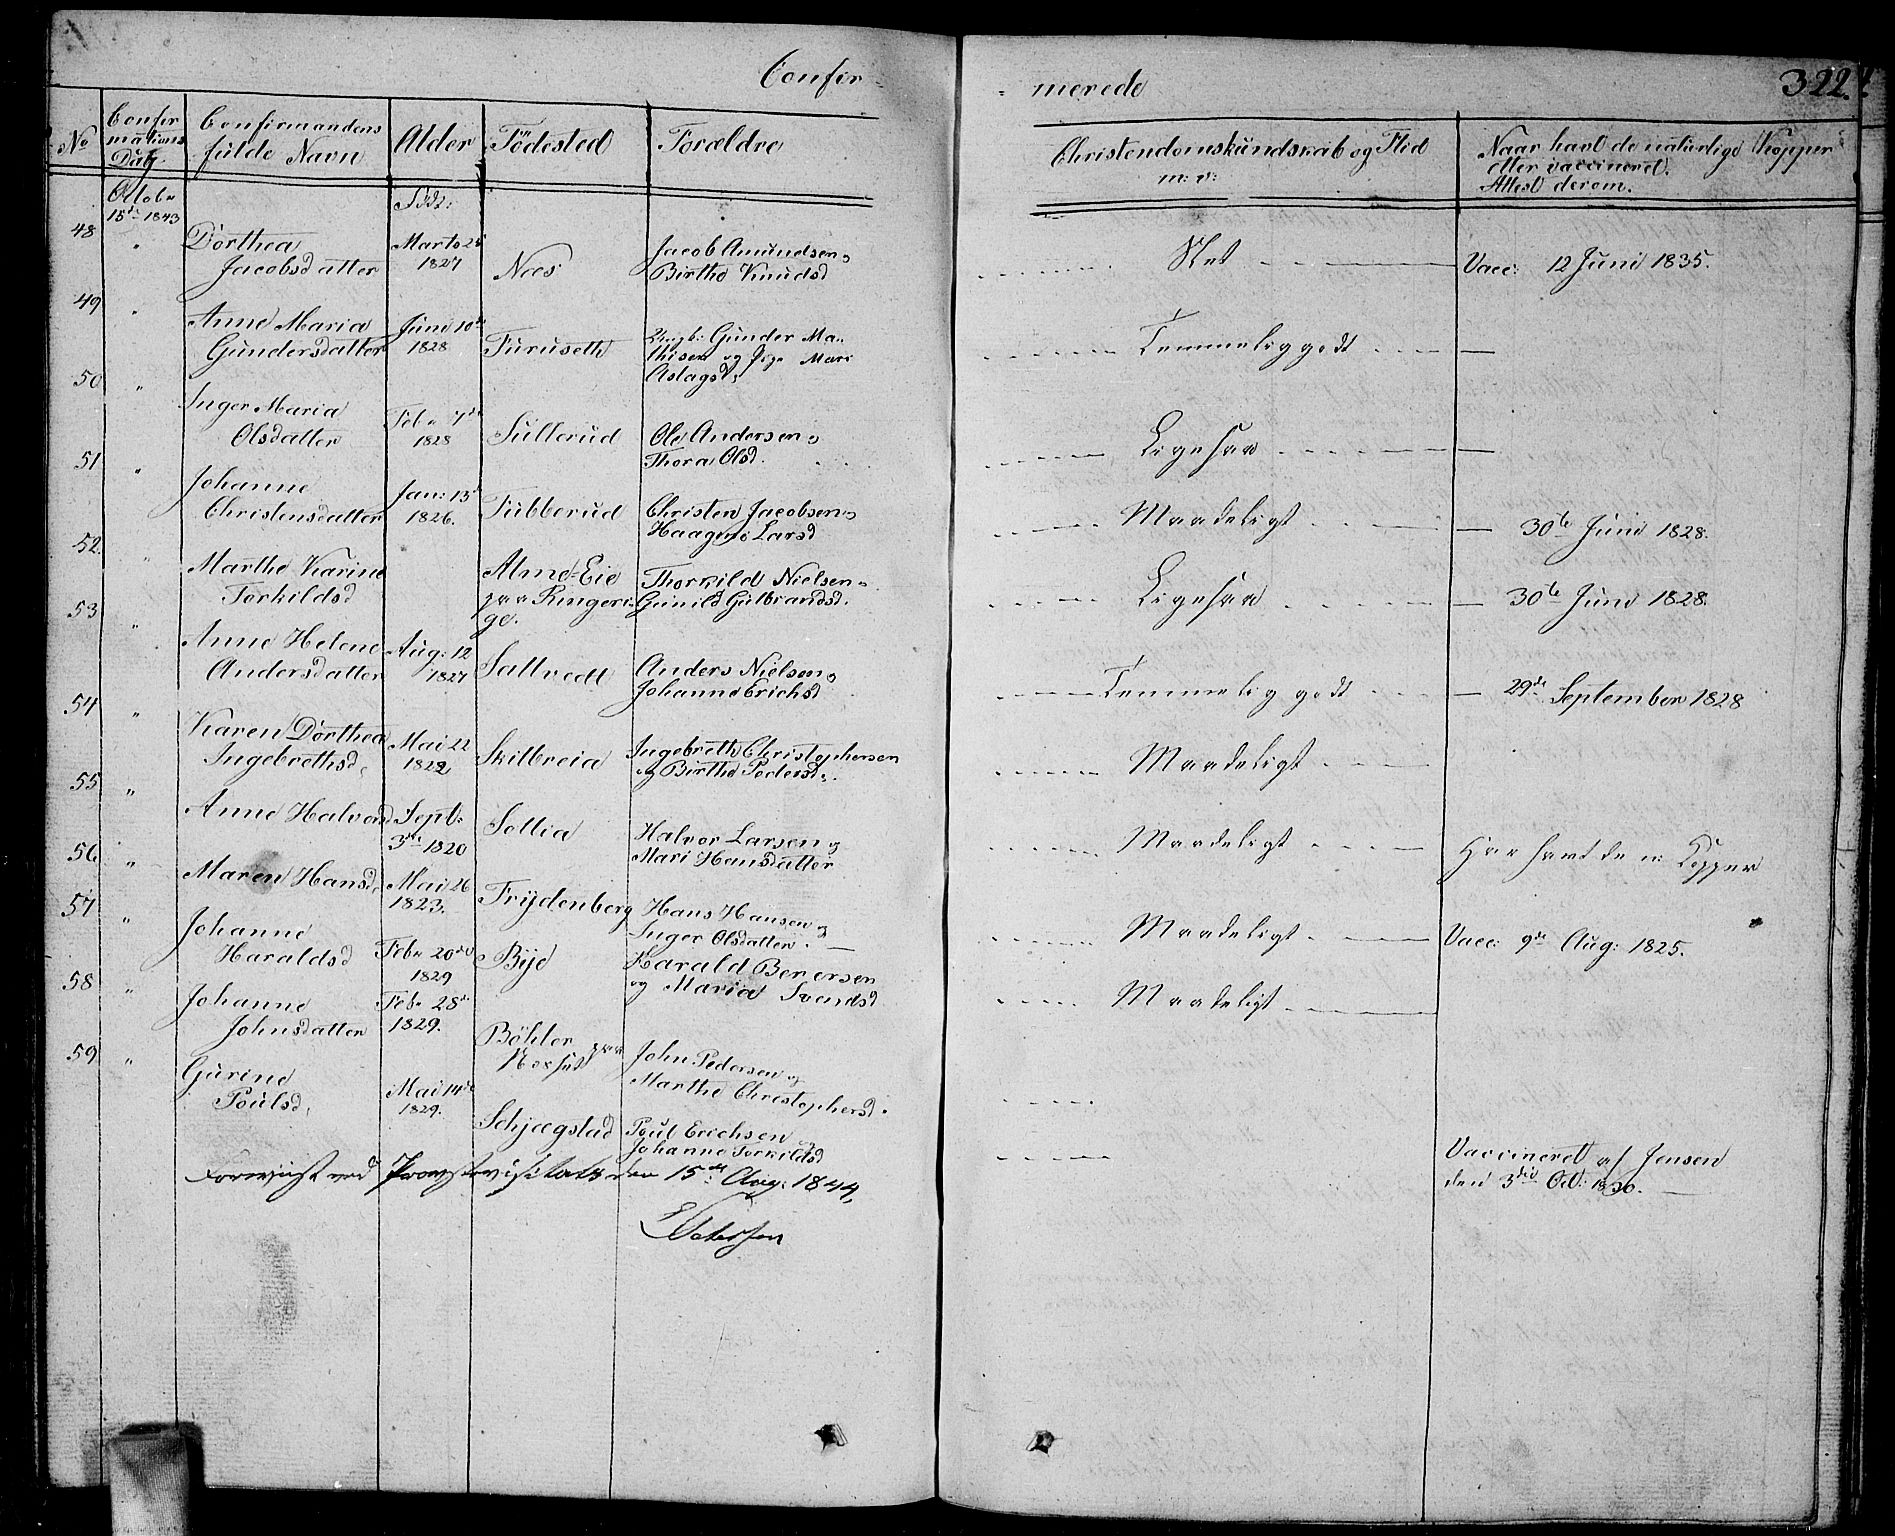 Confir-
No
Confir
mations
Dag
Confirmandens
fulde Navn
Alder
Födested
Forældre
Octobr
15de 1843
Född:
48
"
Dorthea
Jacobsdatter
Marts 25
1827
Næs
Jacob Amundsen og
Birthe Knudsd
49
"
Anne Maria
Gundersdatter
Juni 10de
1828
Furuseth
Ungk: Gunder Ma-
thisen og Pige Mari
Aslagsd:
50
"
Inger Maria
Olsdatter
Febr 7de
1828
Sullerud
Ole Andersen og
Thora Olsd.
51
"
Johanne
Christensdatter
Jan: 13de
1826.
Tubberud
Christen Jacobsen og
Haagine Larsd
52.
"
Marthe Karine
Torkildsd
Alme-Eie
paa Ringeri-
ge.
Thorkild Nielsen og
Gunild Gulbrandsd.
53
"
Anne Helene
Andersdatter
Aug: 12
1827
Saltvedt
Anders Nielsen og
Johanne Erichsd
54
"
Karen Dorthea
Ingebrethsd,
Mai 22
1822
Skilbreia
Ingebreth Christophersen
og Birthe Pedersd.
55
"
Anne Halvorsd
Sept:
3de 1820
Sollia
Halvor Larsen og
Mari Hansdatter
56
"
Maren Hansd,
Mai 26
1823.
Frydenberg
Hans Hansen og
Inger Olsdatter.
57
"
Johanne
Haraldsd
Febr 20de
1829
Bye
Harald Berersen
og Maria Svendsd
58
"
Johanne
Johnsdatter
Feb. 28de
1829.
Böhler paa
Næsset
John Pedersen og
Marthe Christophersd.
59
"
Gurine
Poulsd,
Mai 14de
1829.
Schjægstad
Poul Erichsen og
Johanne Torkildsd
Foreviist ved Provstevisitats den 15de Aug: 1844,
merede
322.
Christendomskundskab og Flid
m: v:
Naar havt de naturlige Kopper
eller vaccineret.
Attest derom.
Slet
Vacc: 12 Juni 1835.
Temmelig godt
Ligesaa
Maadeligt
30te Juni 1828.
Ligesaa
30te Juni 1828.
Temmelig godt
29de September 1828
Maadeligt
Maadeligt
Har havt de n: Kopper
Maadeligt
Vacc: 9de Aug: 1825.
Maadeligt
Vaccineret af Jensen
den 3die Oct: 1830.